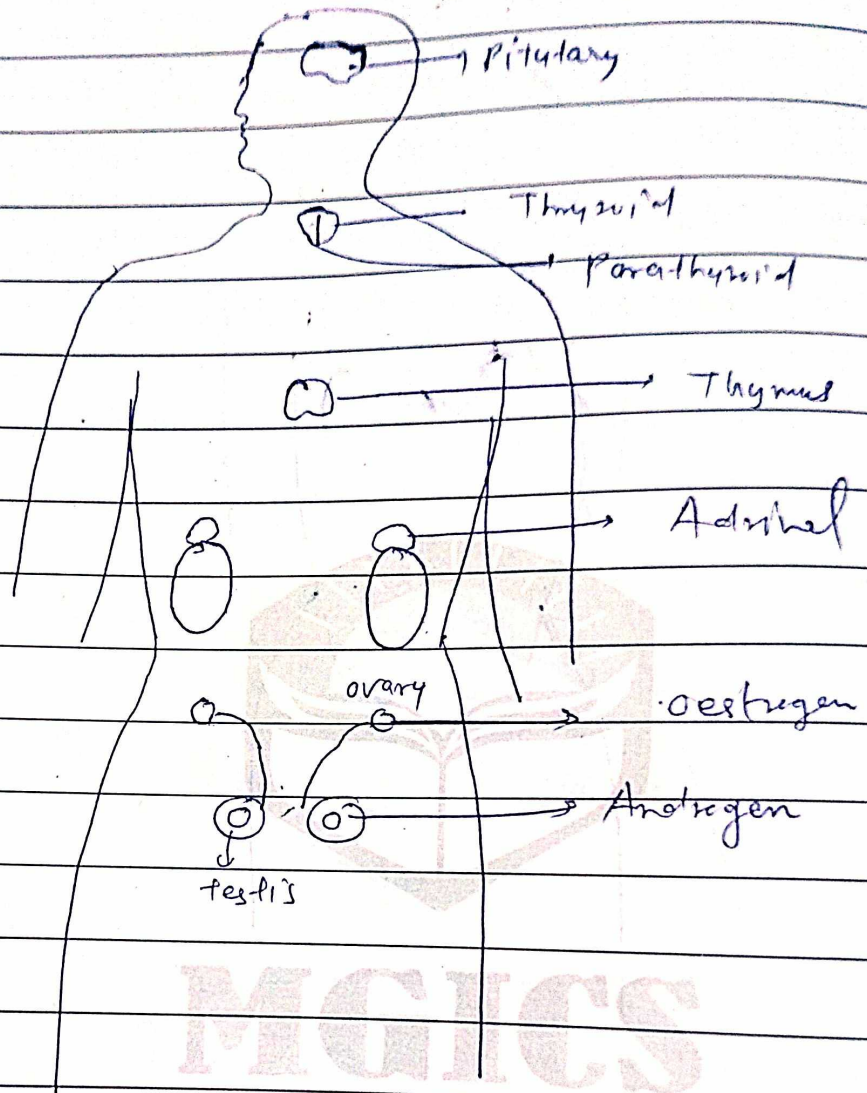 Pitutary
Thyroid
Parathyroid
Thymus
Adrinal
ovary
oestregen
Andregen
testis
MGICS